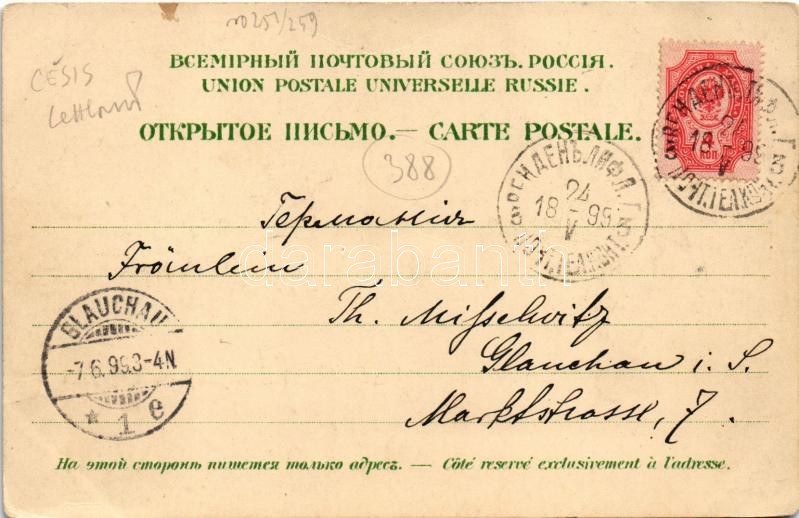 no 251/259
CĒSIS
Lettland
ВСЕМІРНЫЙ ПОЧТОВЫЙ СОЮЗЪ. РОССІЯ.
UNION POSTALE UNIVERSELLE RUSSIE.
ОТКРЫТОЕ ПИСЬМО.— CARTE POSTALE.
388
4
КОП
ВЕНДЕНЪ ЛИФЛ. Г.
24
18 - 99
V
ПОЧТ. ТЕЛ. КОНТ.
Германія
Fräulein
Th. Misselwitz
Glauchau i. S.
Marktstrasse, 7.
GLAUCHAU
-7.6.99.3-4N.
* 1 e
darabanth
На этой сторонѣ пишется только адресъ. — Côté réservé exclusivement à l'adresse.